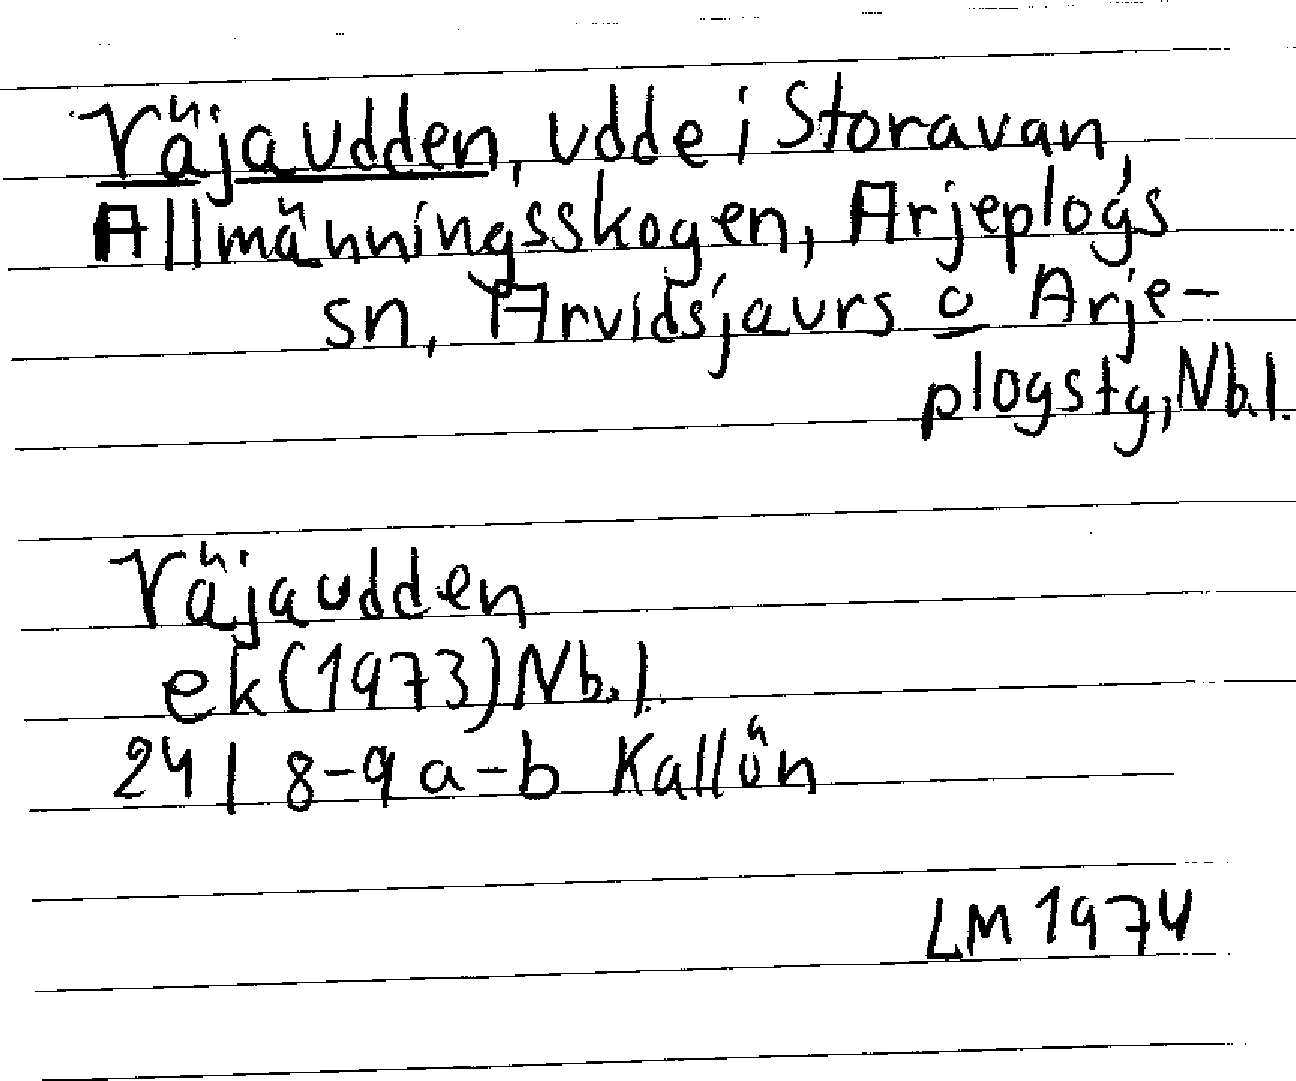 Väjaudden, udde i Storavan,
Allmänningsskogen, Arjeplogs
sn, Arvidsjaurs o Arje-
plogstg, Nb.l.
Väjaudden
ek (1973) Nb.l.
24 I 8-9 a-b Kallön
LM 1974